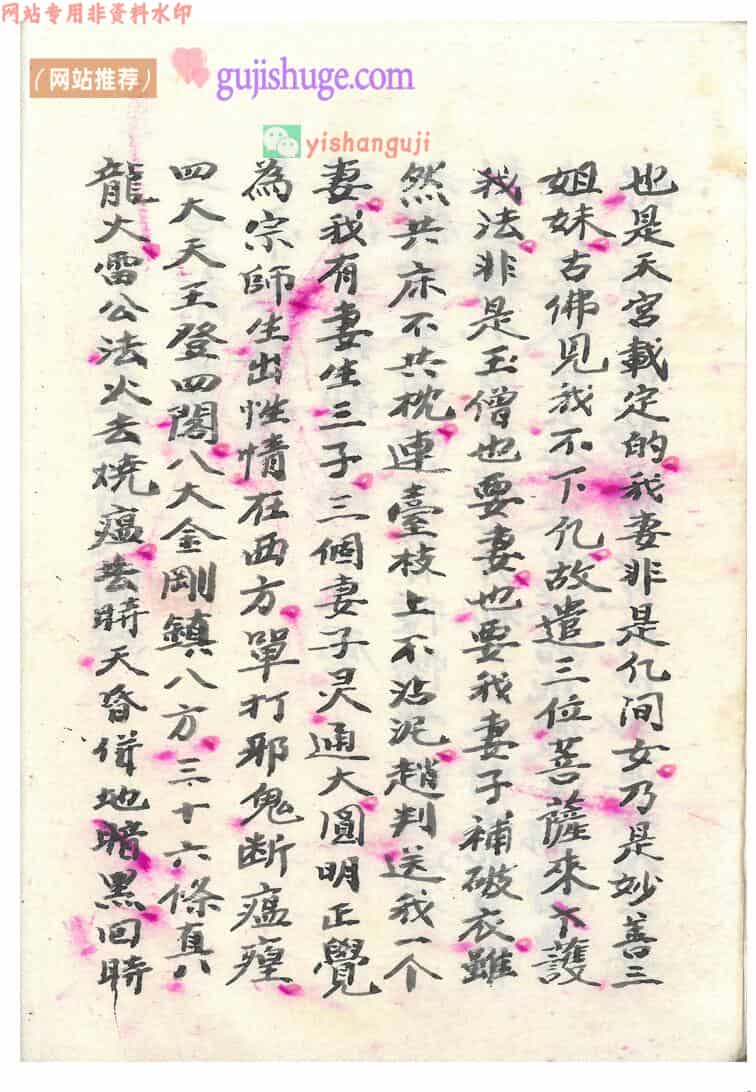 网站专用非资料水印
（网站推荐）
gujishuge.com
yishanguji
也是天宮載定的我妻非是亿间女乃是妙善三
姐妹古佛见我不下亿故遣三位菩薩來下護
我法非是玉僧也要妻也要我妻子補破衣雖
然共床不共枕連臺枝上不沾泥趙判送我一个
妻我有妻生三子三個妻子灵通大圓明正覺
為宗師生出性情在西方單打邪鬼断瘟瘟
四大天王登四閣八大金剛鎮八方三十六條真
龍大雷公法火去燒瘟去時天昏併地暗黑回時